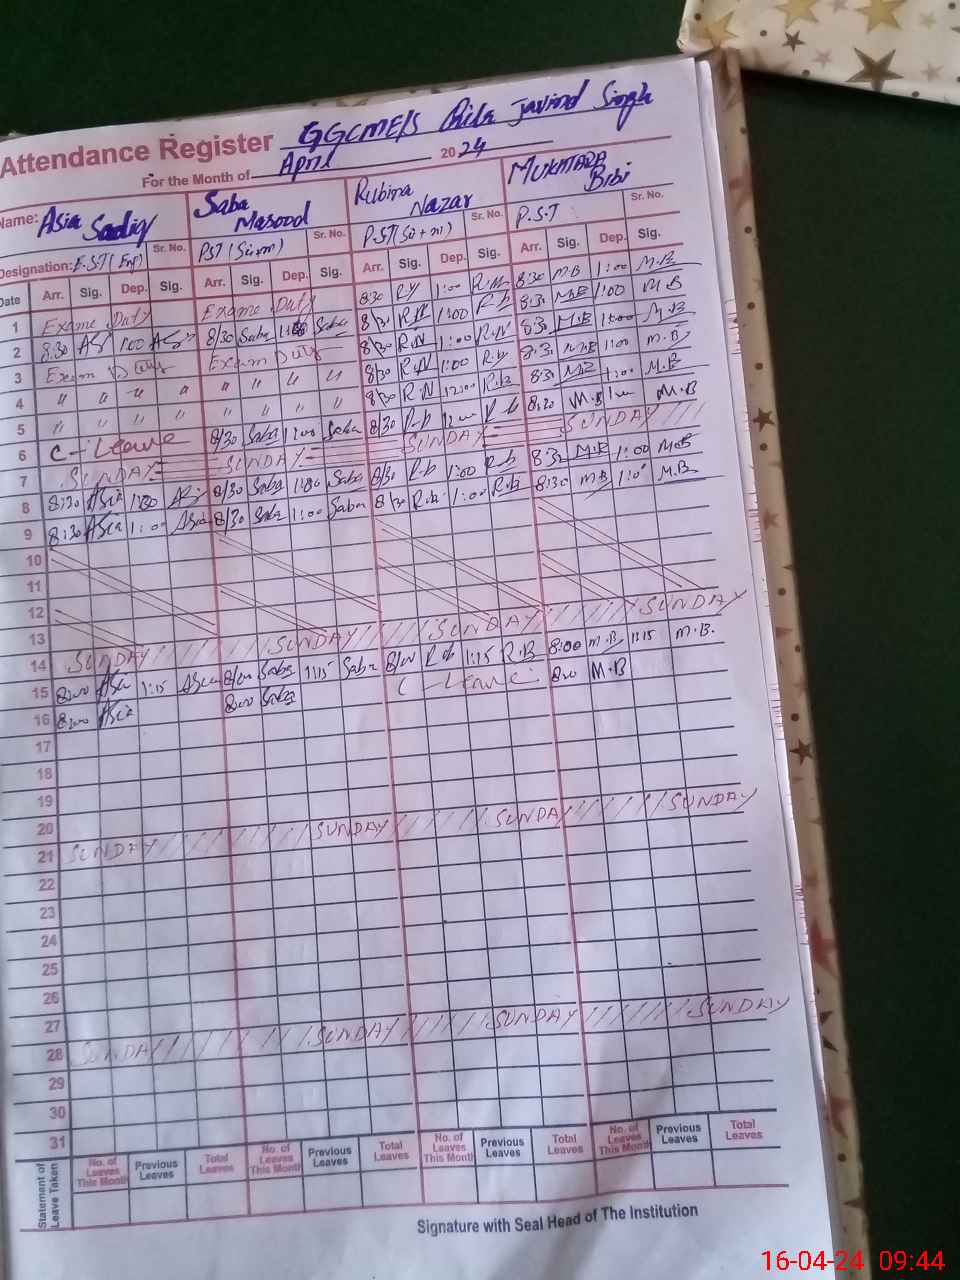 Attendance Register GGCME/S Qila Javind Singh
For the Month of April 2024
Name: Asia Sadiq Saba Masood Rubina Nazar MUKHTARA Bibi
Designation: E.S.T (Eng) Sr. No. PST (Sci+m) Sr. No. P.S.T (Sci+m) Sr. No. P.S.T Sr. No.
Date Arr. Sig. Dep. Sig. Arr. Sig. Dep. Sig. Arr. Sig. Dep. Sig. Arr. Sig. Dep. Sig.
1 Exame Duty Exame Duty 8:30 1:00 R.N 8:30 M.B 1:00 M.B
2 8:30 AS 1:00 AS 8/30 Saba 1:00 Saba 8/30 R.N 1:00 R.b 8:30 M.B 1:00 M.B
3 Exam Duty Exam Duty 8/30 R.N 1:00 R.N 8:30 M.B 1:00 M.B
4 " " " " " " " " 8/30 R.N 1:00 R.b 8:30 M.B 1:00 M.B
5 " " " " " " " " 8/30 R.N 12:00 R.b 8:30 M.B 1:00 M.B
6 C-Leave 8/30 Saba 12:00 Saba 8/30 R.b 12:00 R.b 8:30 M.B M.B
7 SUNDAY SUNDAY SUNDAY SUNDAY
8 8:30 Asia 1:00 8/30 Saba 1:00 Saba 8/30 R.b 1:00 R.b 8:30 M.B 1:00 M.B
9 8:30 Asia 1:00 Asia 8/30 Saba 1:00 Saba 8/30 R.b 1:00 R.b 8:30 M.B 1:00 M.B
10
11
12
13
14 SUNDAY SUNDAY SUNDAY SUNDAY
15 8:00 Asia 1:15 Asia 8/00 Saba 1:15 Saba 8/00 R.b 1:15 R.B 8:00 M.B 1:15 M.B.
16 8:00 Asia 8:00 Saba C-Leave 8:00 M.B
17
18
19
20
21 SUNDAY SUNDAY SUNDAY SUNDAY
22
23
24
25
26
27
28 SUNDAY SUNDAY SUNDAY SUNDAY
29
30
31
Statement of Leave Taken No. of Leaves This Month Previous Leaves Total Leaves No. of Leaves This Month Previous Leaves Total Leaves No. of Leaves This Month Previous Leaves Total Leaves No. of Leaves This Month Previous Leaves Total Leaves
Signature with Seal Head of The Institution
16-04-24 09:44